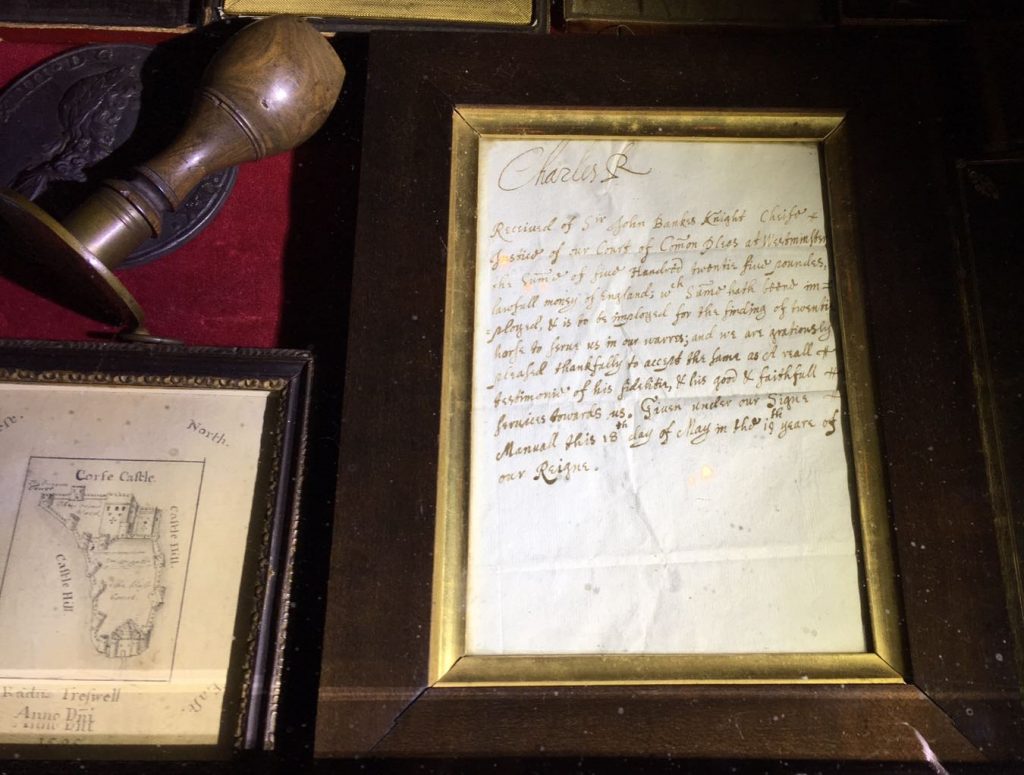 Charles R
Received of Sir John Bankes Knight Cheife
Justice of our Court of Com̄on Pleas at Westminster
the Sum̄e of five Hundred twentie five poundes,
lawfull money of England; wch Sum̄e hath beene im-
-ployed, & is to be imployed for the finding of twenti
horse to serve us in our warres; and we are gratiously
pleased thankfully to accept the same as A reall
testimonie of his fidelitie, & his good & faithfull
services towards us. Given under our Signe
Manuall this 18th day of May in the 19th yeare of
our Reigne.
North.
Corfe Castle.
Castle Hill
Castle Hill
East.
Radus Treswell
Anno Dni